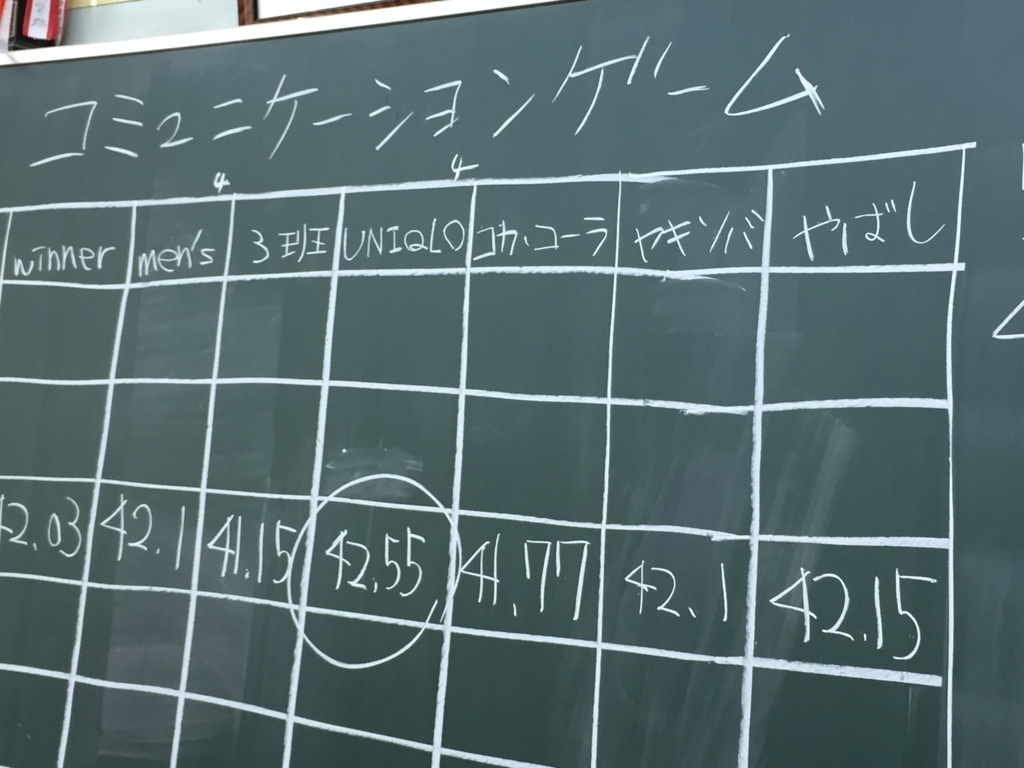 コミュニケーションゲーム
4 4
winner men's 3班 UNIQLO コカ・コーラ ヤキソバ やばし
42.03 42.1 41.15 42.55 41.77 42.1 42.15